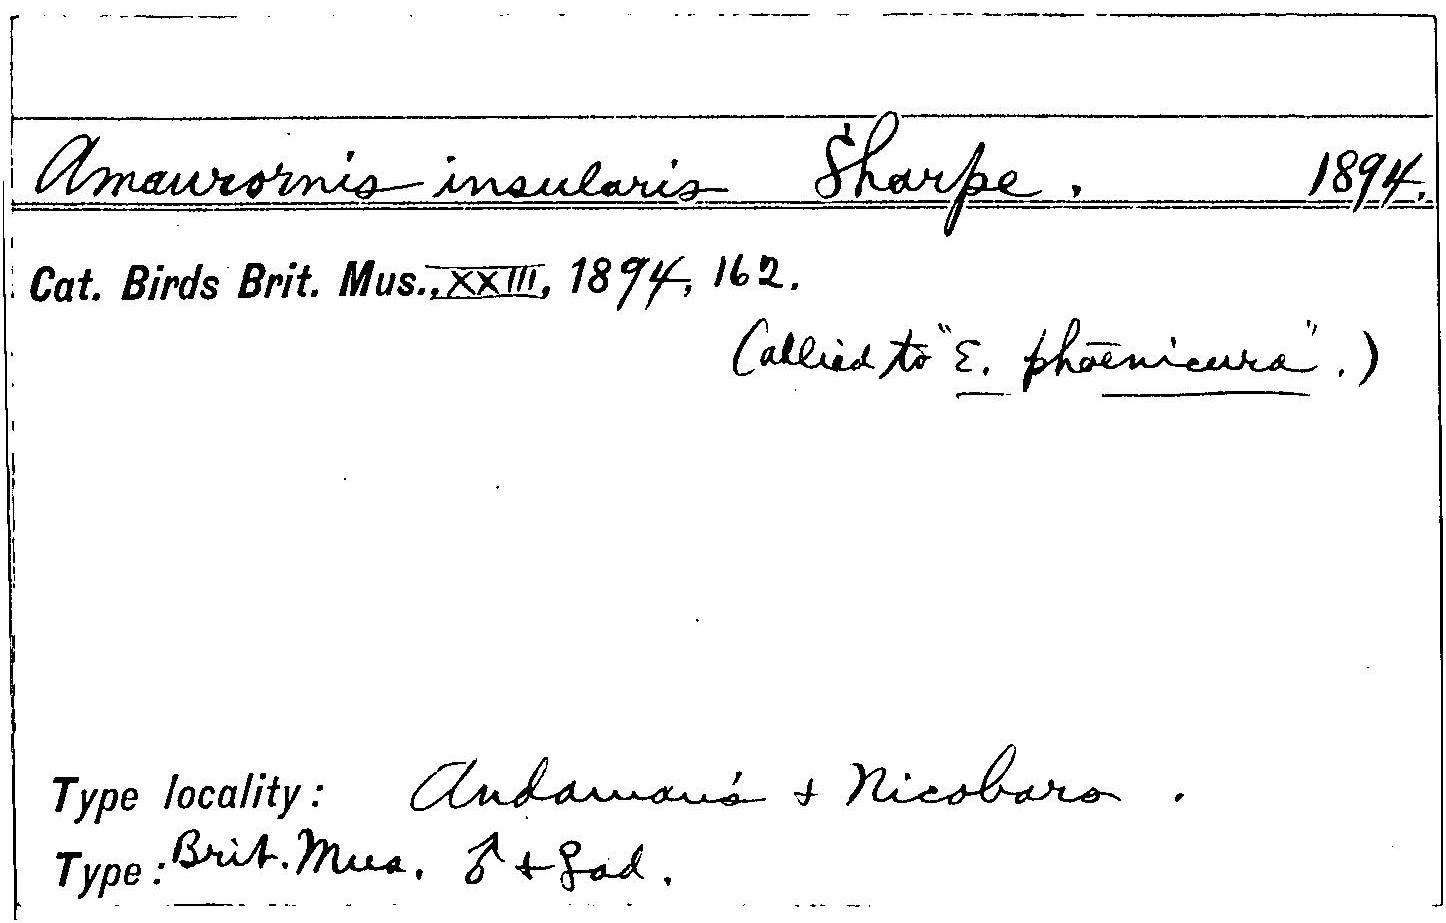 Amaurornis insularis Sharpe. 1894.
Cat. Birds Brit. Mus., XXIII, 1894, 162.
(allied to "E. phoenicura".)
Type locality: Andaman's + Nicobars.
Type: Brit. Mus. ♂ + ♀ ad.